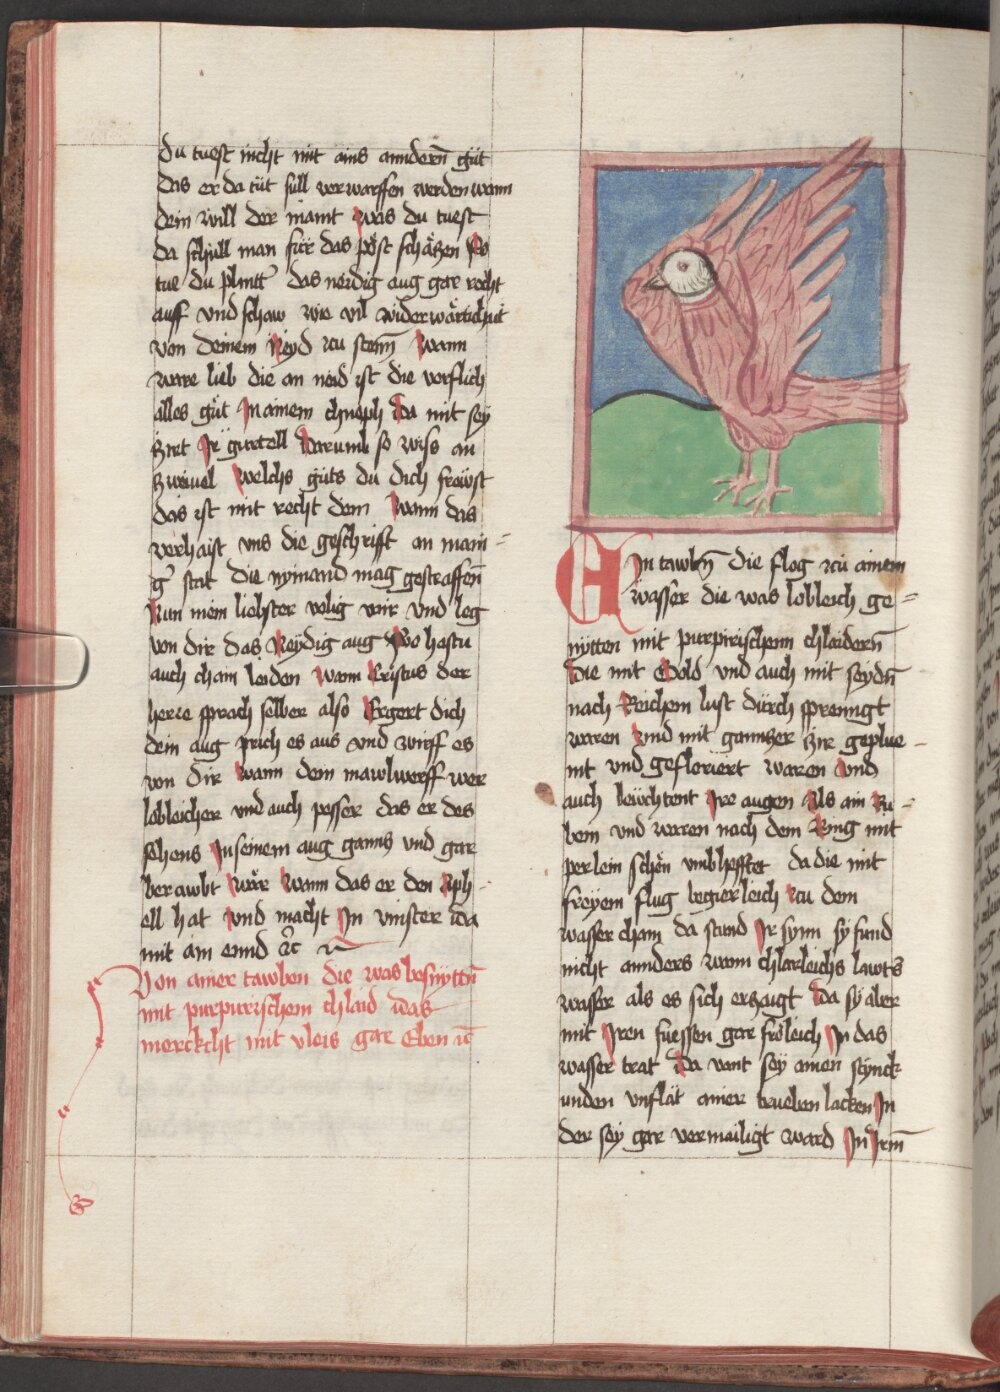 du tuest nicht mit ains anndern̄ güt
das er da tüt sull verwarffen werden wann
dein will der maint was du tuest
da schull man für das pöst schäczen So
tue du plintt das neidig aug gar recht
auff vnd schaw wie vil widerwärtichait
von deinem Neyd zu stenn̄ Wann
ware lieb die an neid ist die vorslich
alles güt In ainem chnoph da mit sey
ziret Ir gürtell darumb so wiss an
zweiuel welchs güts du dich fröwst
das ist mit recht dein Wann das
verhaist vns die geschrifft an mani=
g̛ stat die nyimand mag gestraffen̄
Nun mein liebster volig mir vnd leg
von dir das Neydig aug So hastu
auch chain leiden Wann Cristus der
herre sprach selber also Ergert dich
dein aug prich es aus vnd wirff es
von dir wann dem mawlwerff wer
lobleicher vnd auch pesser das er des
sehens In seinem aug ganncz vnd gar
berawbt wär Wann das er den Aph=
ell hat vnd macht In vinster da
mit am ennd ⁊c̄
Von ainer tawben die was besnytten̄
mit purpurischem chlaid das
merckcht mit vleis gar Eben ⁊c̄
Ein tawbn̄ die flog zu ainem
wasser die was lobleich ge=
nytten mit purpirischenn chlaidern̄
die mit Gold vnd auch mit seydn̄
nach Reichem lust dürch sprenngt
waren vnd mit gannczer zir geplue=
mt vnd gefloriert waren vnd
auch leüchtent Ire augen Als ain Ru=
bein vnd waren nach dem Ring mit
perlein schön vmbhefftet da die mit
freyem flug begierleich zu dem
wasser cham da stund Ir synn sy fund
nicht annders wann chlarleichs lawt̛s
wasser als es sich erzaigt da sy aber
mit Iren fuessen gar frölich In das
wasser trat da vant sey ainen stynck=
unden vnflat ainer trueben lacken In
der sey gar vermailigt ward In Irm̄